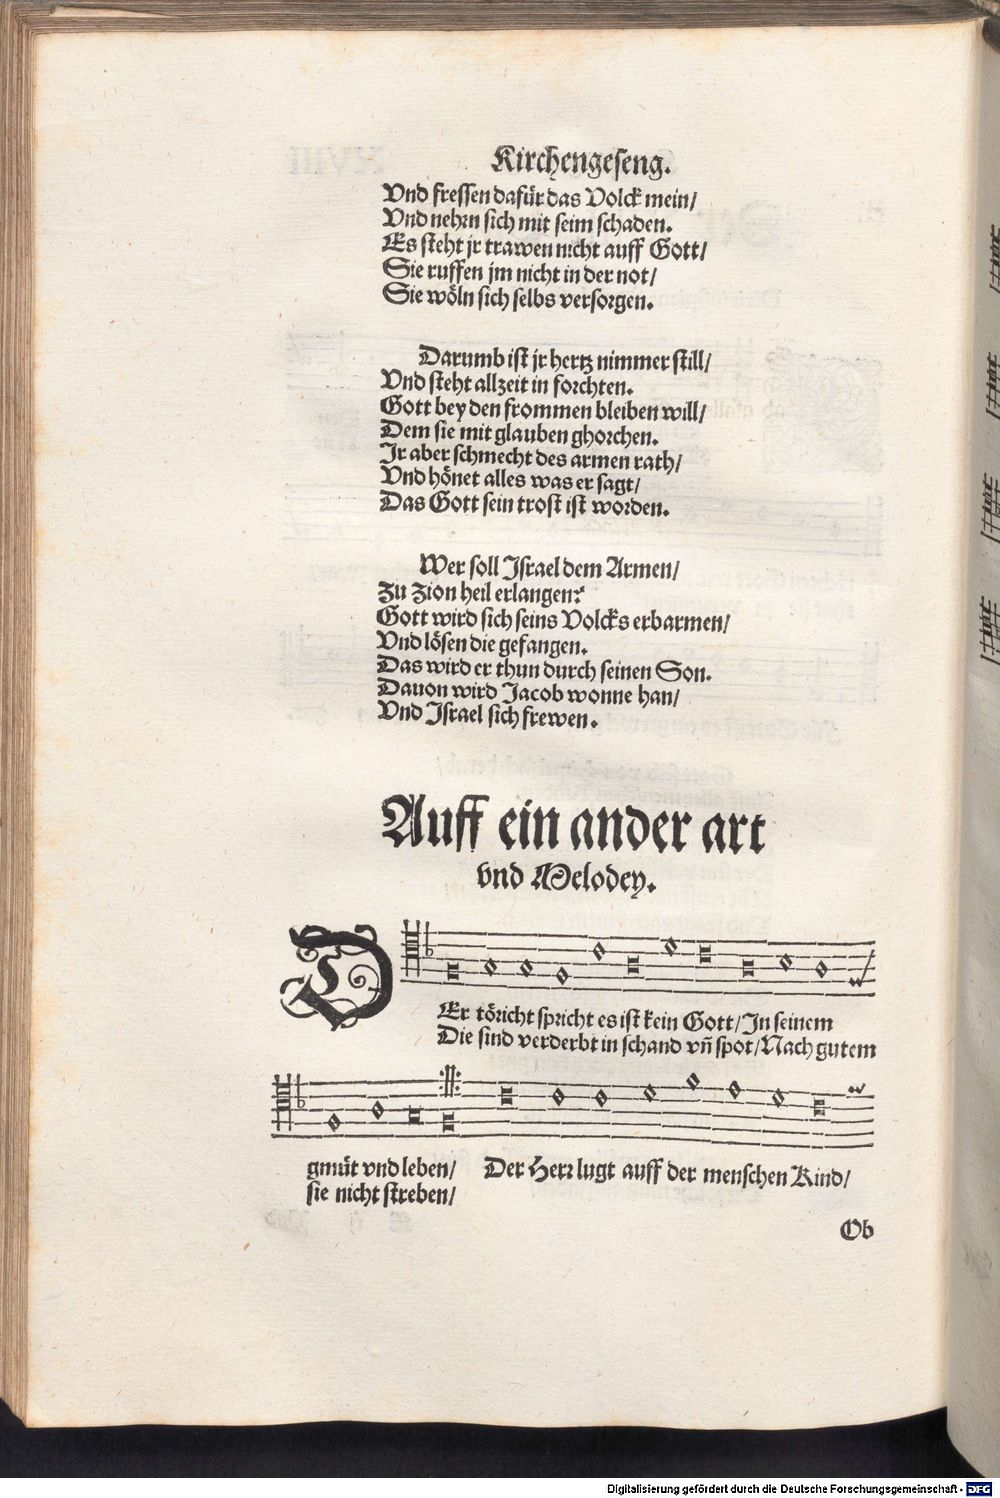 Kirchengeseng.
Vnd fressen dafür das Volck mein/
Vnd nehrn sich mit seim schaden.
Es steht jr trawen nicht auff Gott/
Sie ruffen jm nicht in der not/
Sie wöln sich selbs versorgen.
Darumb ist jr hertz nimmer still/
Vnd steht allzeit in forchten.
Gott bey den frommen bleiben will/
Dem sie mit glauben ghorchen.
Jr aber schmecht des armen rath/
Vnd hönet alles was er sagt/
Das Gott sein trost ist worden.
Wer soll Israel dem Armen/
Zu Zion heil erlangen?
Gott wird sich seins Volcks erbarmen/
Vnd lösen die gefangen.
Das wird er thun durch seinen Son.
Dauon wird Jacob wonne han/
Vnd Israel sich frewen.
Auff ein ander art
vnd Melodey.
DEr töricht spricht es ist kein Gott/In seinem
Die sind verderbt in schand vñ spot/Nach gutem
gmüt vnd leben/ Der Herr lugt auff der menschen Kind/
sie nicht streben/
Ob
Digitalisierung gefördert durch die Deutsche Forschungsgemeinschaft - DFG